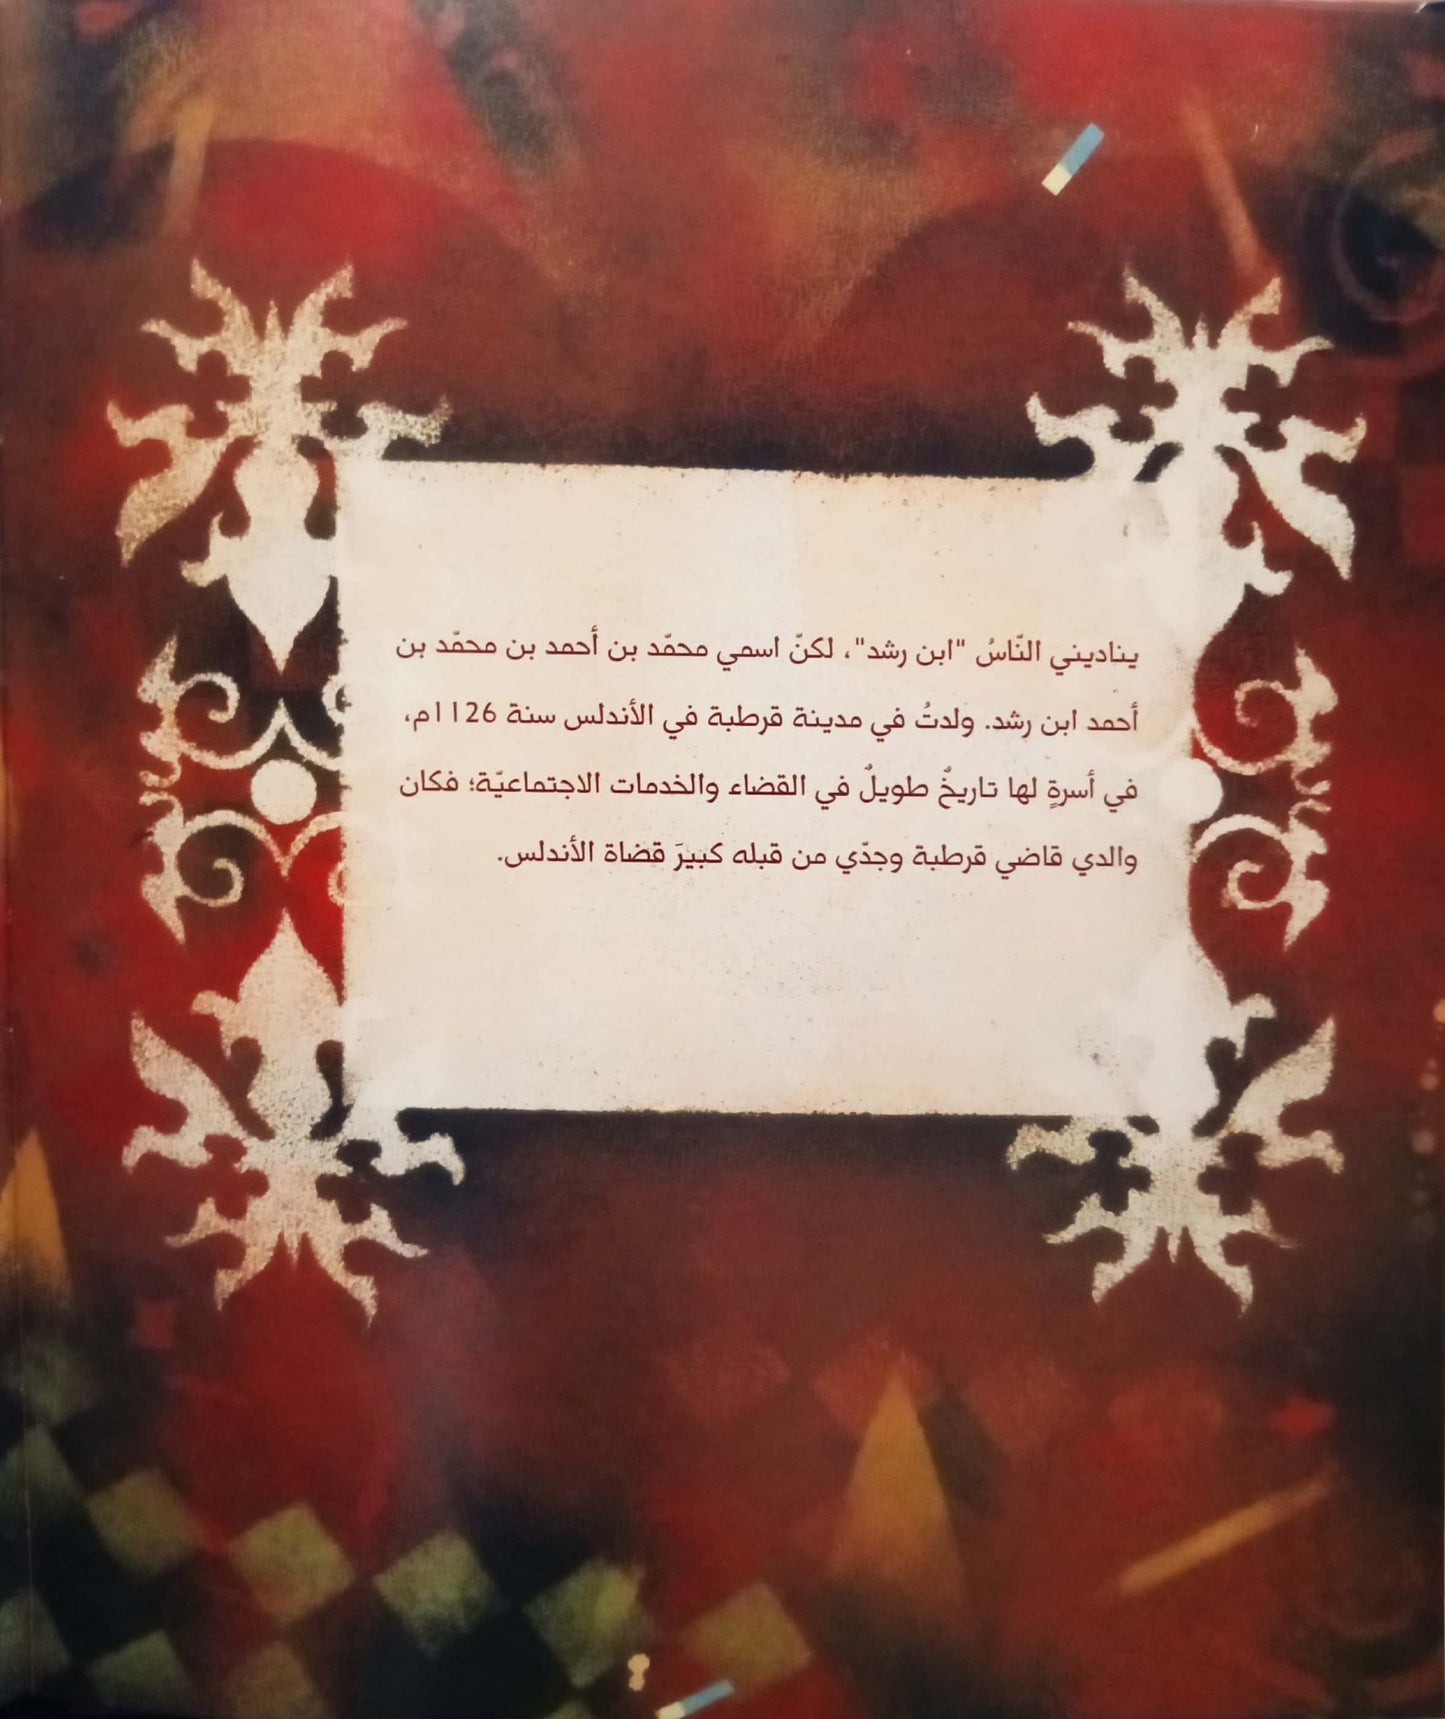 يناديني النّاسُ "ابن رشد"، لكنّ اسمي محمّد بن أحمد بن محمّد بن
أحمد ابن رشد. ولدتُ في مدينة قرطبة في الأندلس سنة 1126م،
في أسرةٍ لها تاريخٌ طويلٌ في القضاء والخدمات الاجتماعيّة؛ فكان
والدي قاضي قرطبة وجدّي من قبله كبيرَ قضاة الأندلس.